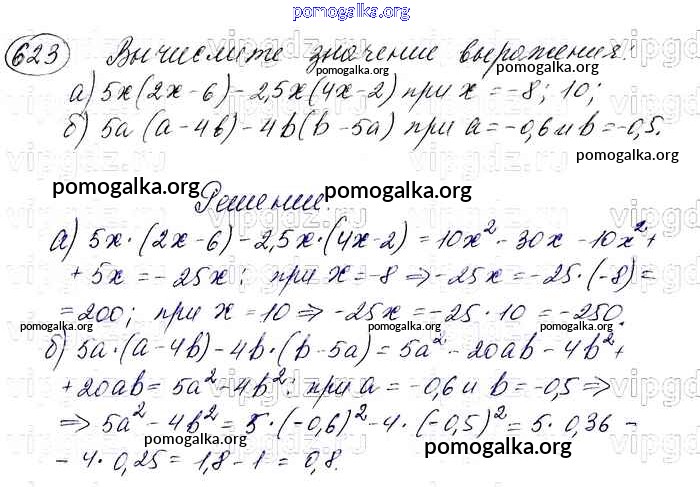 pomogalka.org
623 Вычислите значение выражения:
pomogalka.org pomogalka.org
а) 5x(2x-6)-2,5x(4x-2) при x=-8; 10;
б) 5a(a-4b)-4b(b-5a) при a=-0,6 и b=-0,5.
pomogalka.org pomogalka.org
pomogalka.org Решение: pomogalka.org
а) 5x·(2x-6)-2,5x·(4x-2)=10x²-30x-10x²+
+5x=-25x; при x=-8 ⇒ -25x=-25·(-8)=
=200; при x=10 ⇒ -25x=-25·10=-250.
pomogalka.org pomogalka.org pomogalka.org
б) 5a·(a-4b)-4b·(b-5a)=5a²-20ab-4b²+
+20ab=5a²-4b²; при a=-0,6 и b=-0,5 ⇒
⇒ 5a²-4b²=5·(-0,6)²-4·(-0,5)²=5·0,36-
pomogalka.org pomogalka.org
-4·0,25=1,8-1=0,8.